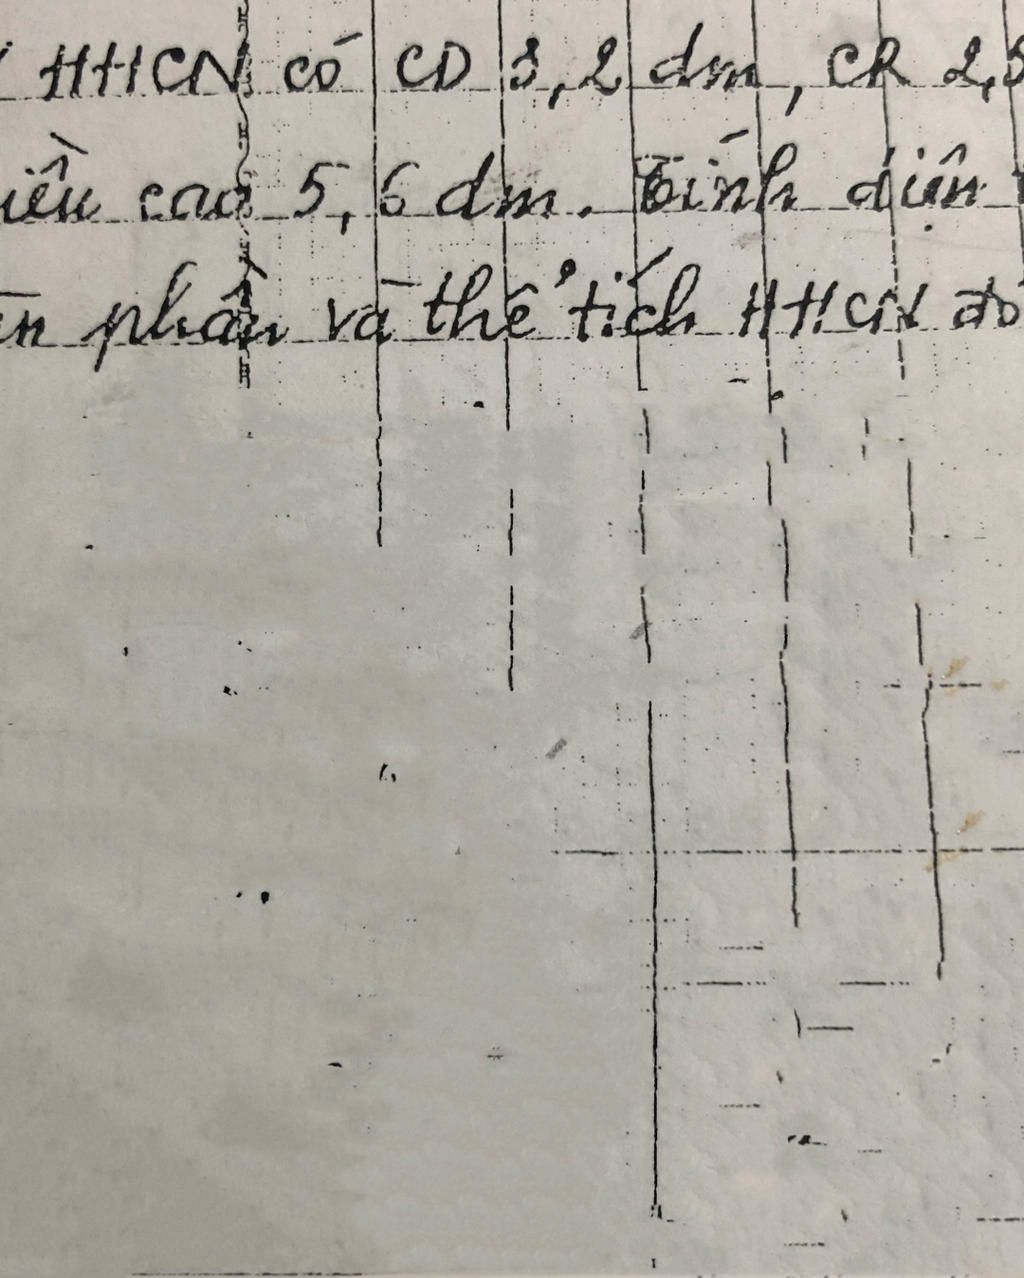 HHCN có CD 3,2 dm, CR 2,5
iều cao 5,6 dm. Tính diện
ần phần và thể tích HHCN đó